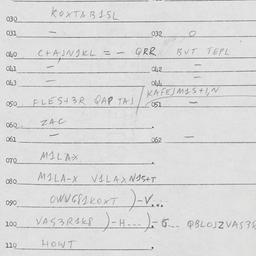 030 KOXTAB1SL
031 – 032 0
040 C+A1N1KL = – QRR BUT TEPL
041 – 042 –
043 – 044 –
050 FLES+3R QAP TAJ / KAFEJM1S+1,N
051 –
060 ZAC
061 – 062 –
070 M1LAX
080 M1LA-X V1LAXN1S+T
090 OWVG81KOXT )-V...
100 VAS3R1K8 )-H...)-G... QBLOJZVAS3R
110 HOWT